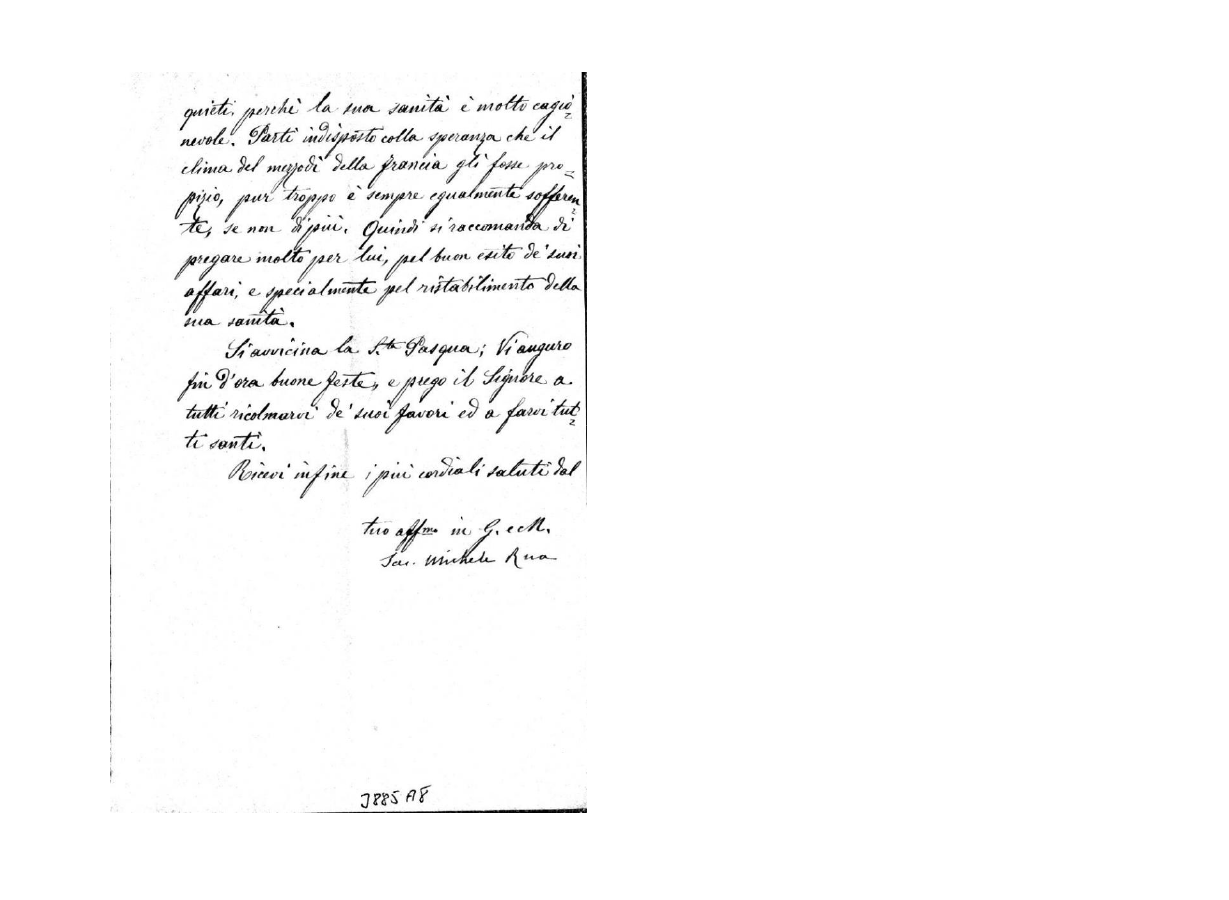 quieti, perchè la sua sanità è molto cagio=
nevole. Partì indisposto colla speranza che il
clima del mezzodì della Francia gli fosse pro=
pizio, pur troppo è sempre egualmente sofferen=
te, se non di più. Quindi si raccomanda di
pregare molto per lui, pel buon esito de' suoi
affari, e specialmente pel ristabilimento della
sua sanità.
Si avvicina la S.ta Pasqua; Vi auguro
fin d'ora buone feste, e prego il Signore a
tutti ricolmarvi de' suoi favori ed a farvi tut=
ti santi.
Ricevi infine i più cordiali saluti dal
tuo affmo in G. e M.
Sac. Michele Rua
J885 A8